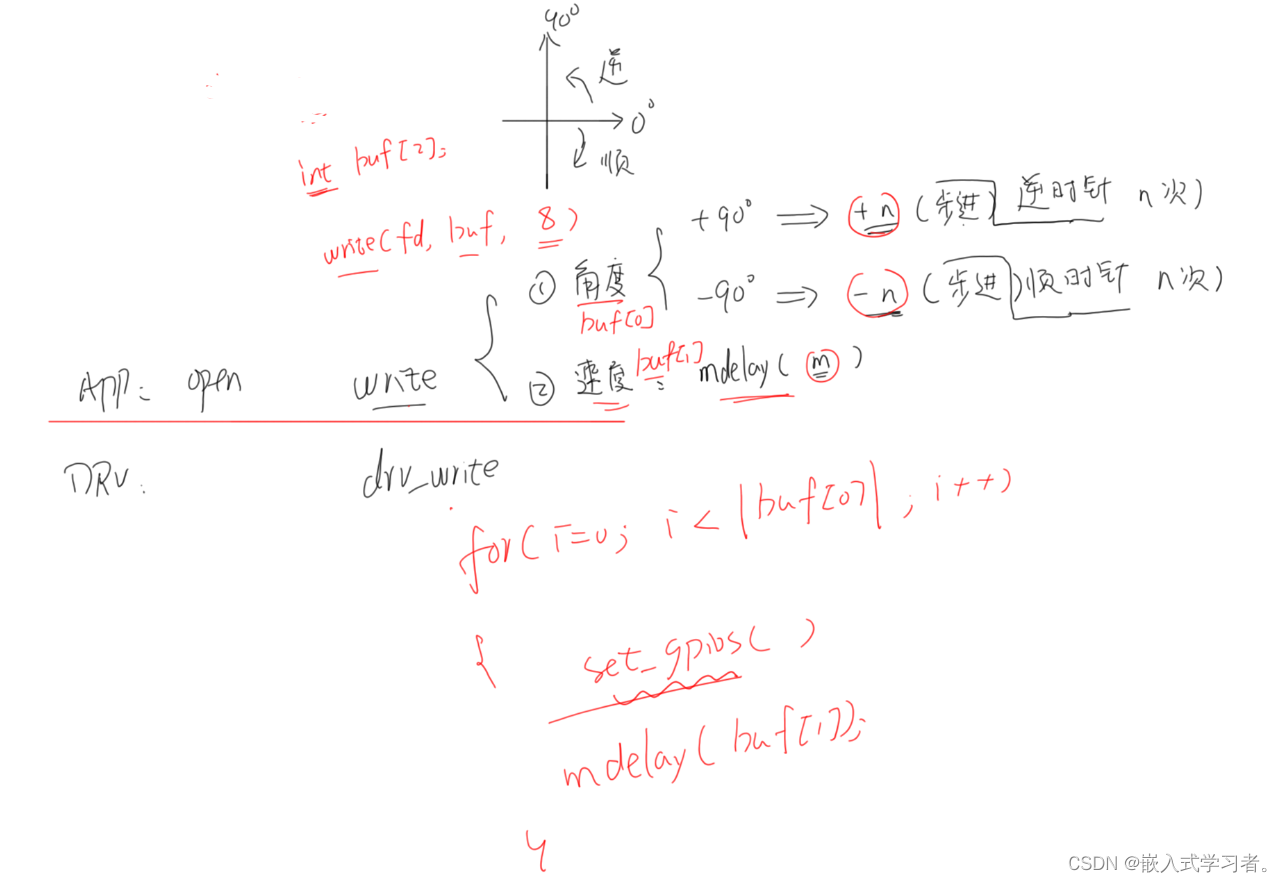 90°
逆
0°
顺
int buf[2];
write(fd, buf, 8)
+90° ⇒ +n (步进) 逆时针 n次)
① 角度 {
buf[0]
-90° ⇒ -n (步进) 顺时针 n次)
APP: open write {
② 速度 buf[1] : mdelay( m )
DRV: drv_write
for(i=0; i < |buf[0]| ; i++)
{ set_gpios( )
mdelay(buf[1]);
}
CSDN @嵌入式学习者。